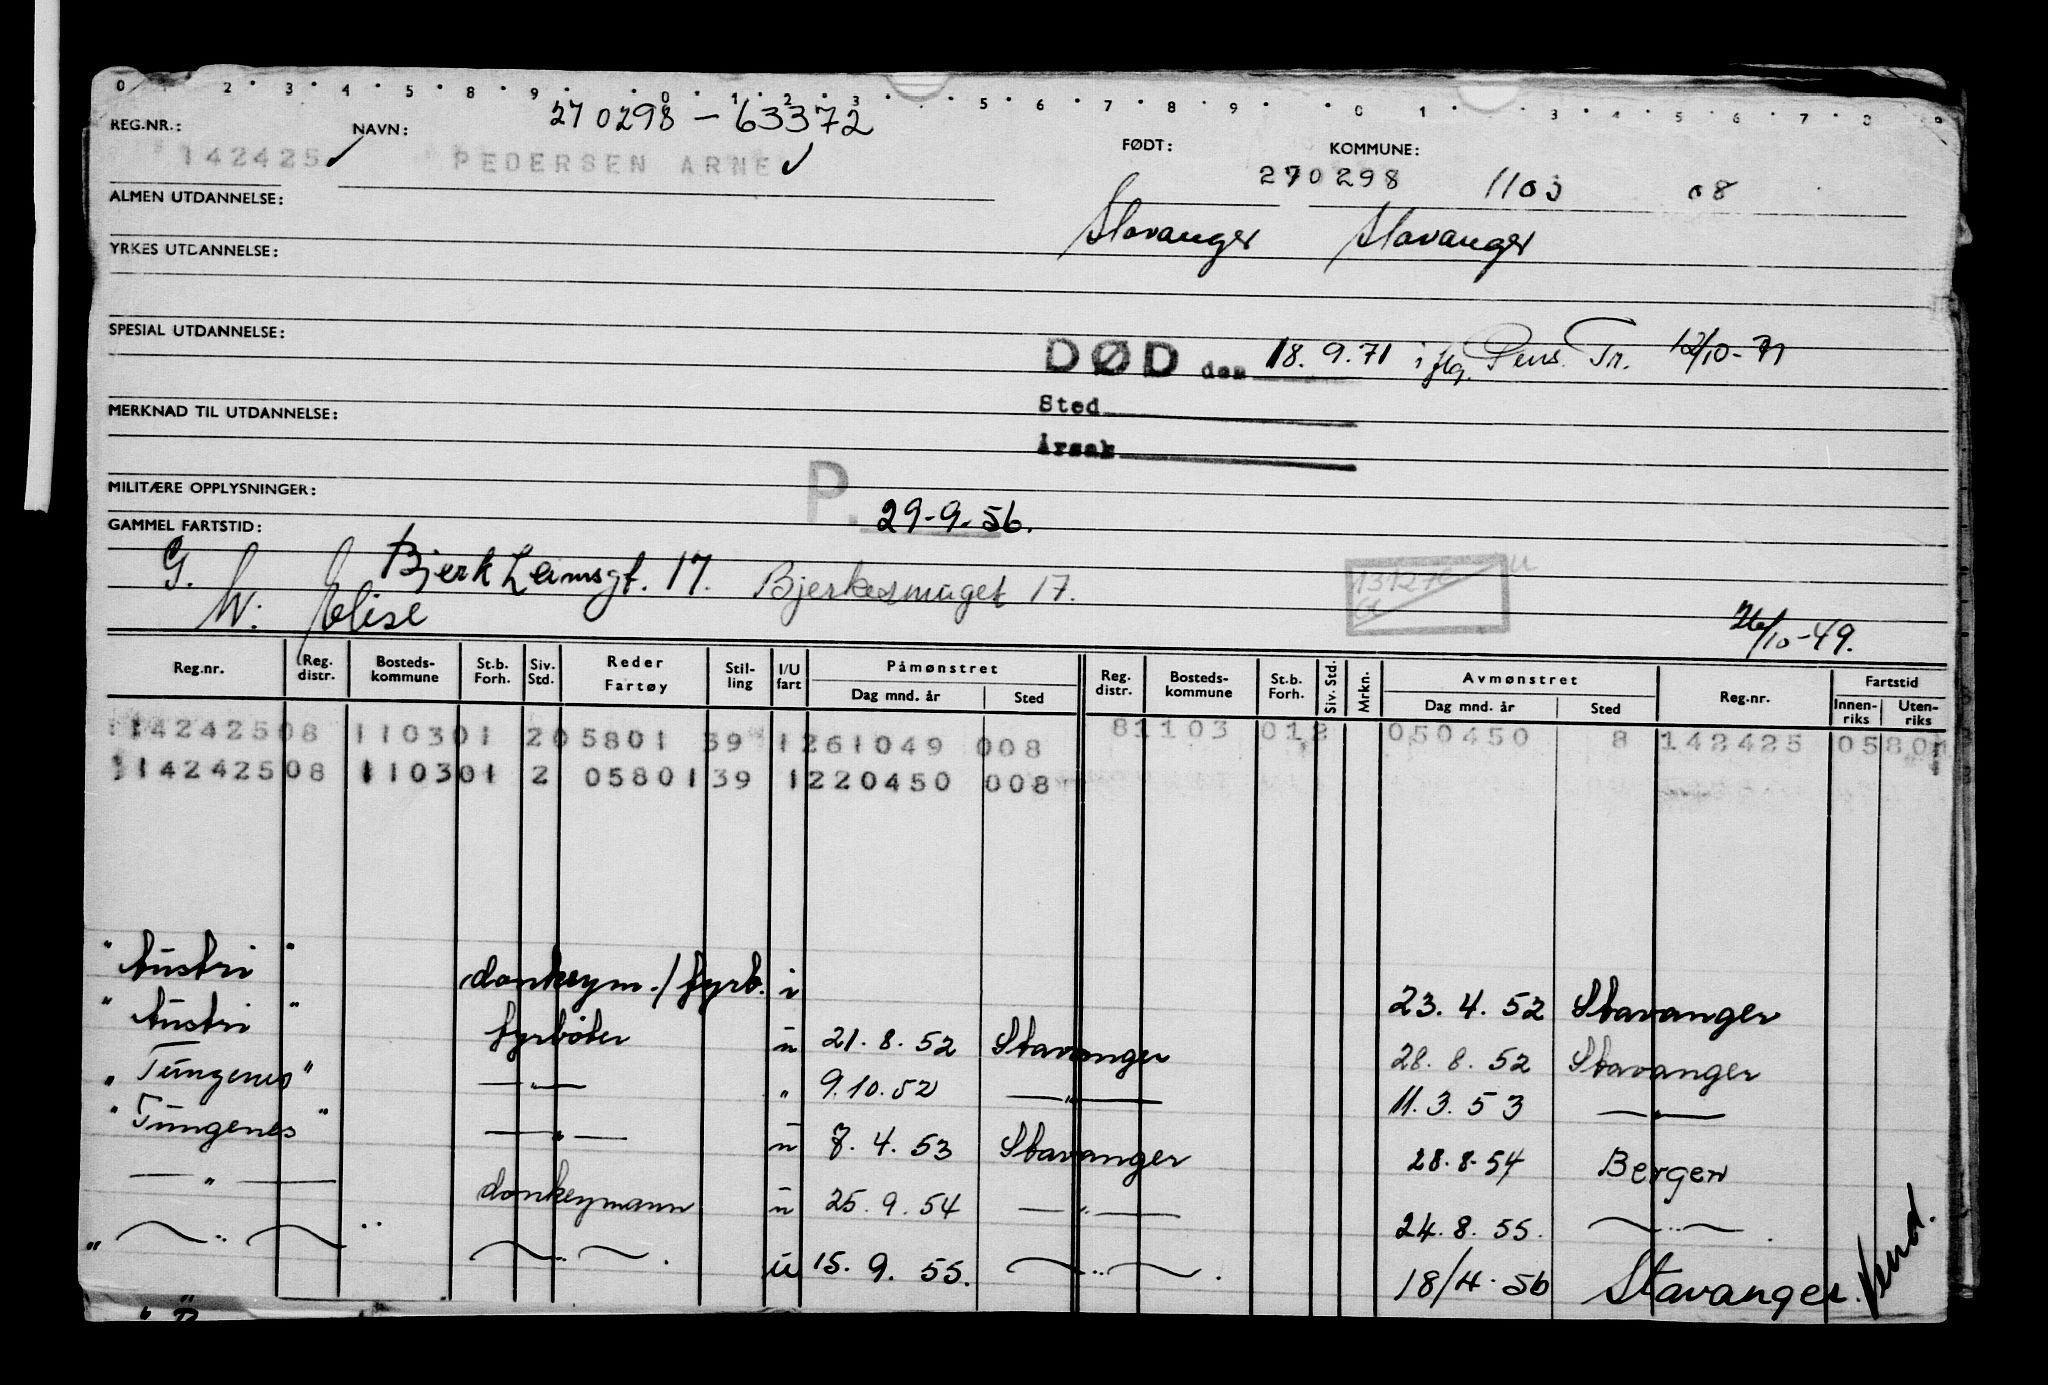 0 2 3 4 5 8 9 0 1 2 3 5 6 7 8 9 0 1 3 4 5 6 7 8 9
270298 - 63372
REG.NR.: NAVN: FØDT: KOMMUNE:
142425 ✓ PEDERSEN ARNE ✓ 270298 1103 08
ALMEN UTDANNELSE: Stavanger Stavanger
YRKES UTDANNELSE:
SPESIAL UTDANNELSE:
DØD den 18.9.71 iflg. Pens. Tr. 12/10-71
Sted
MERKNAD TIL UTDANNELSE:
Årsak
MILITÆRE OPPLYSNINGER: P. 29-9-56.
GAMMEL FARTSTID:
G. Bjerk Leimsgt. 17. Bjerkesmuget 17.
W: Elise 26/10-49.
Reg.nr. Reg. distr. Bosteds-kommune St.b. Forh. Siv. Std. Reder Fartøy Stil-ling I/U fart Påmønstret Dag mnd. år Sted Reg. distr. Bosteds-kommune St.b. Forh. Siv. Std. Mrkn. Avmønstret Dag mnd. år Sted Reg.nr. Fartstid Innen-riks Uten-riks
114242508 110301 205801 39 1261049 008 81103 012 050450 8 142425 05801
114242508 110301 2 05801 39 1220450 008
"Austri" donkeym./fyrb. i 23.4.52 Stavanger
"Austri" fyrbøter u 21.8.52 Stavanger 28.8.52 Stavanger
"Tungenes" —"— " 9.10.52 —"— 11.3.53 —"—
"Tungenes" —"— u 7.4.53 Stavanger 28.8.54 Bergen
—"— donkeymann u 25.9.54 —"— 24.8.55. —"—.
" —"— " —"—. u 15.9.55. —"—. 18/4.56 Stavanger.
Vend.